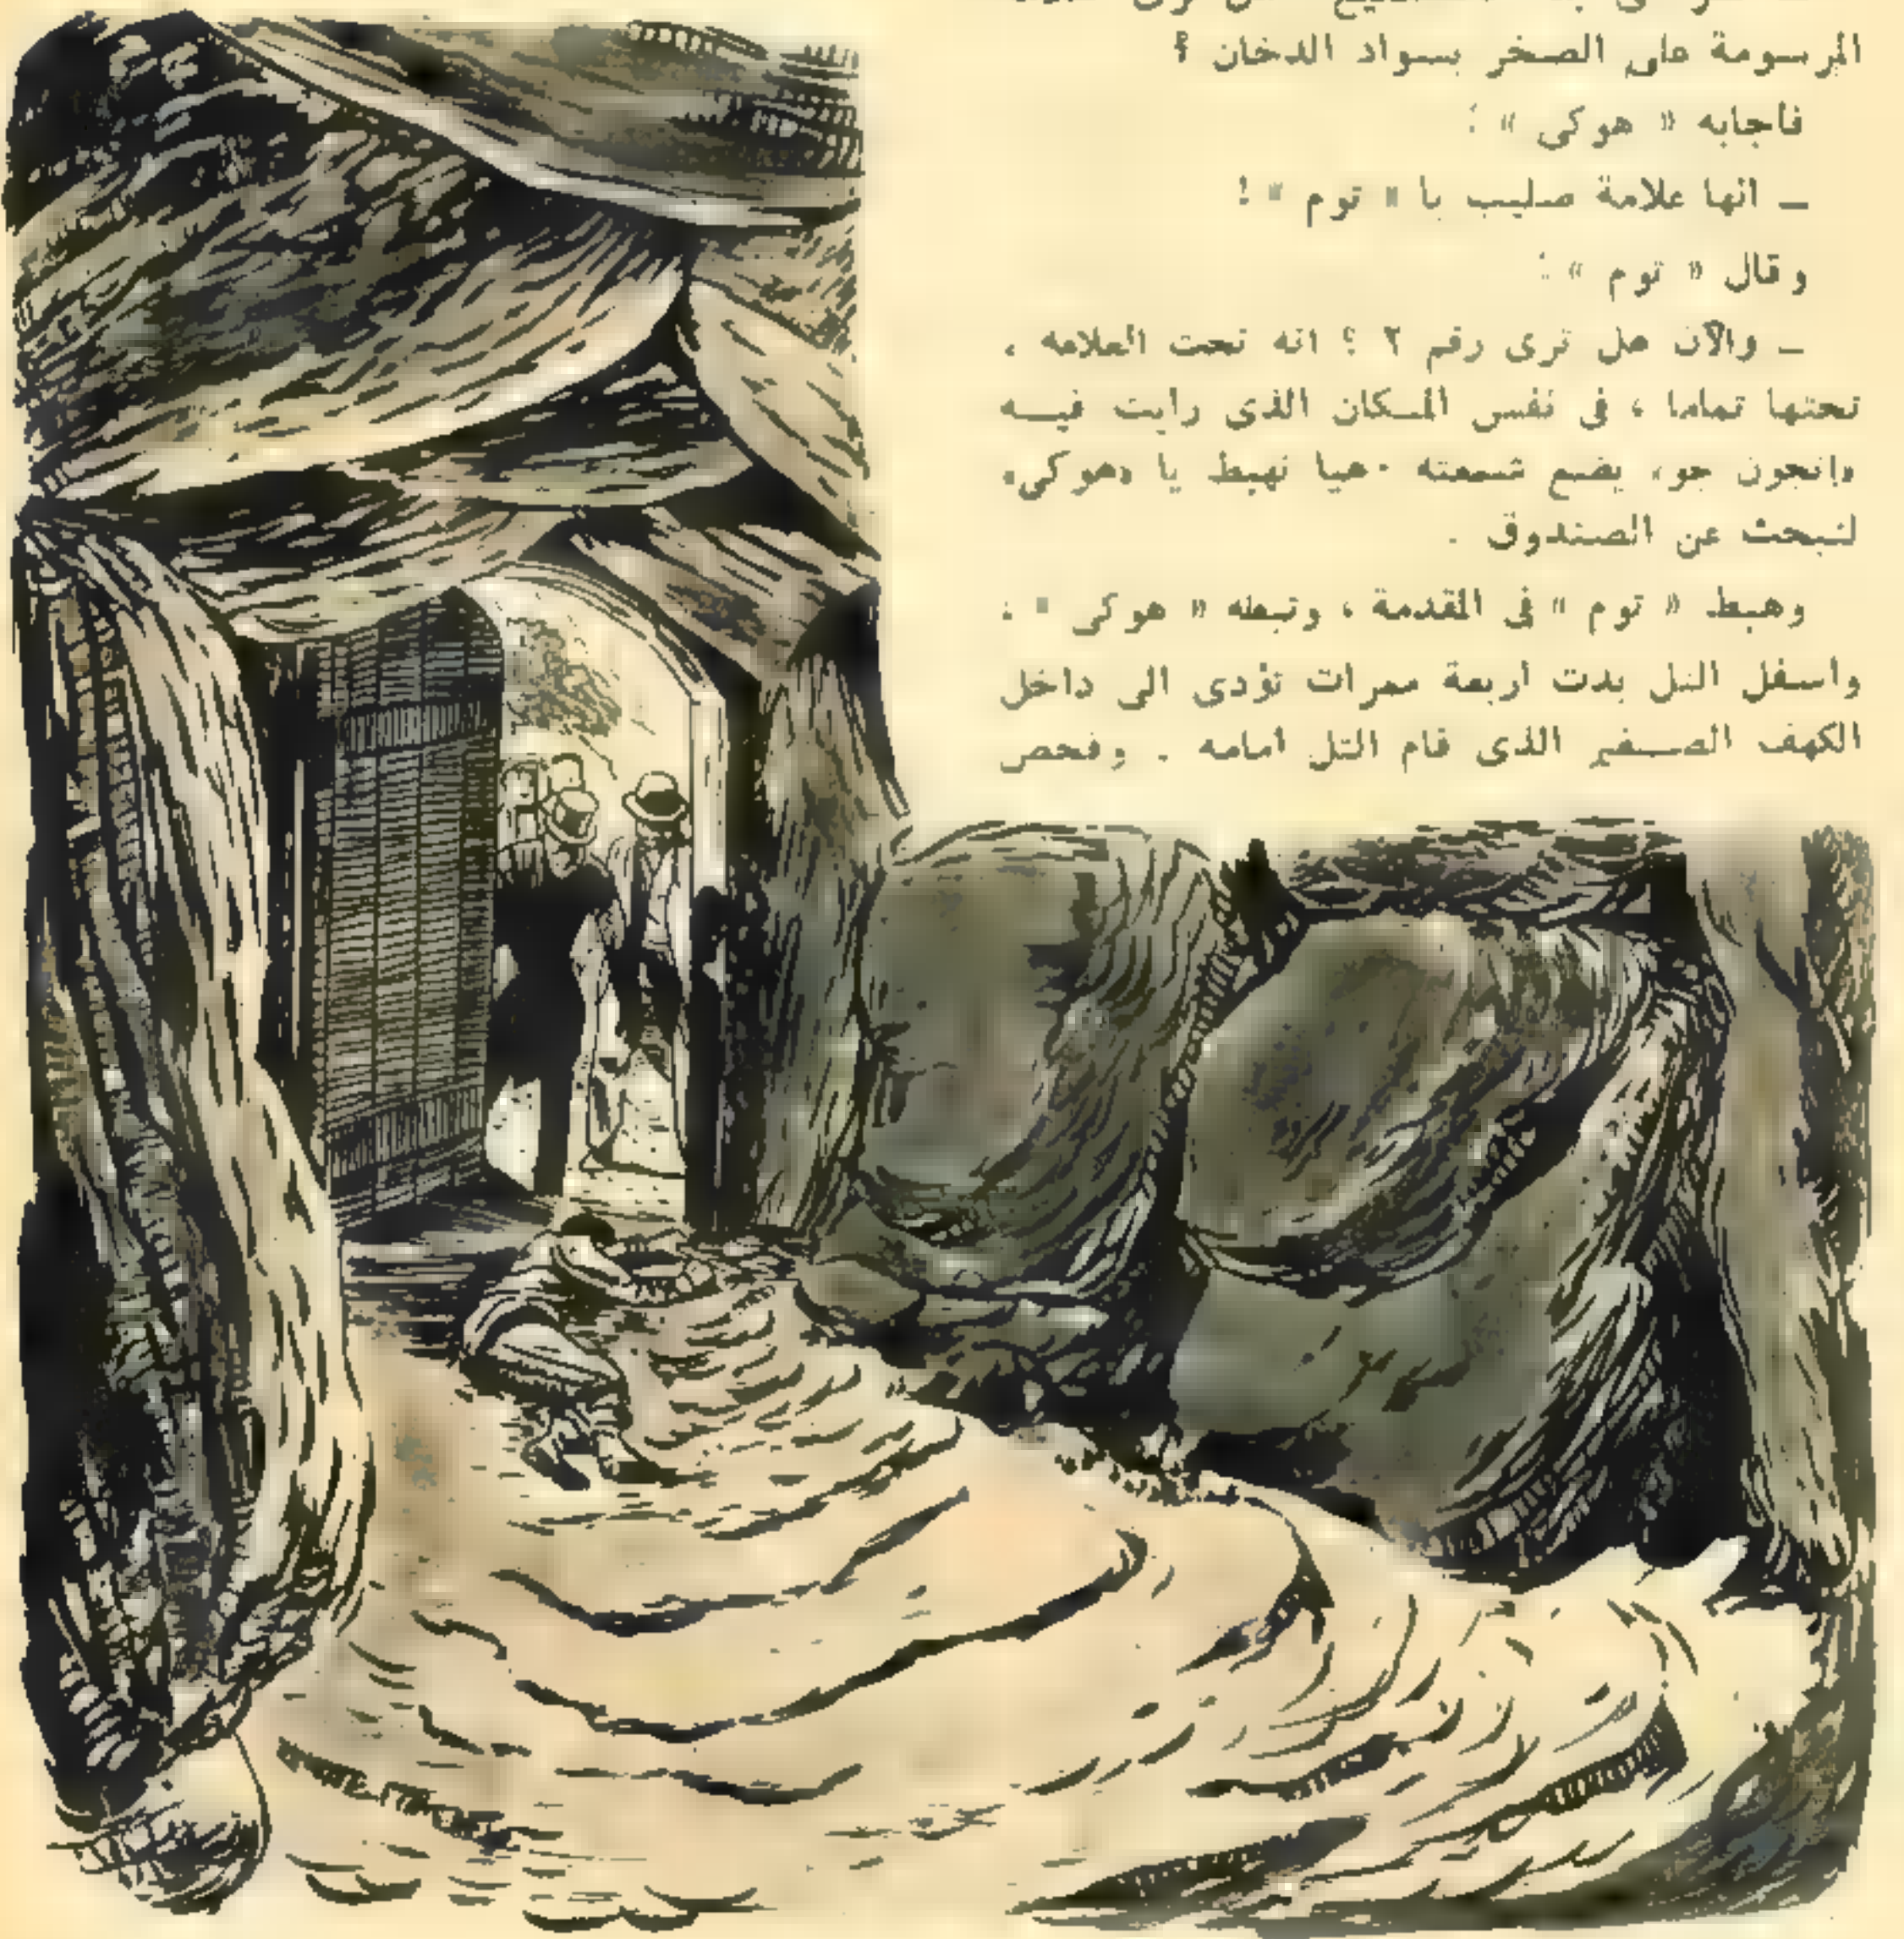 المرسومة على الصخر بسواد الدخان ؟
فأجابه « هوكى » :
ـ انها علامة صليب يا « توم » !
وقال « توم » :
ـ والآن هل ترى رقم ٢ ؟ انه تحت العلامه ،
تحتها تماما ، فى نفس المكان الذى رايت فيــه
«انجون جو» يضع شمعته ٠ هيا نهبط يا «هوكى»
لنبحث عن الصندوق .
وهبط « توم » فى المقدمة ، وتبعه « هوكى » .
وأسفل التل بدت أربعة ممرات تؤدى الى داخل
الكهف الصــغير الذى قام التل أمامه . وفحص